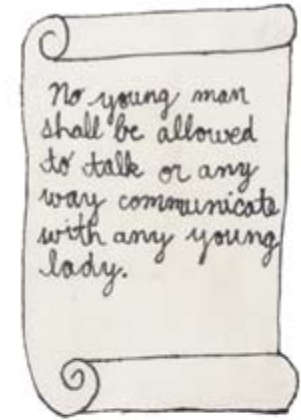 No young man
shall be allowed
to talk or any
way communicate
with any young
lady.